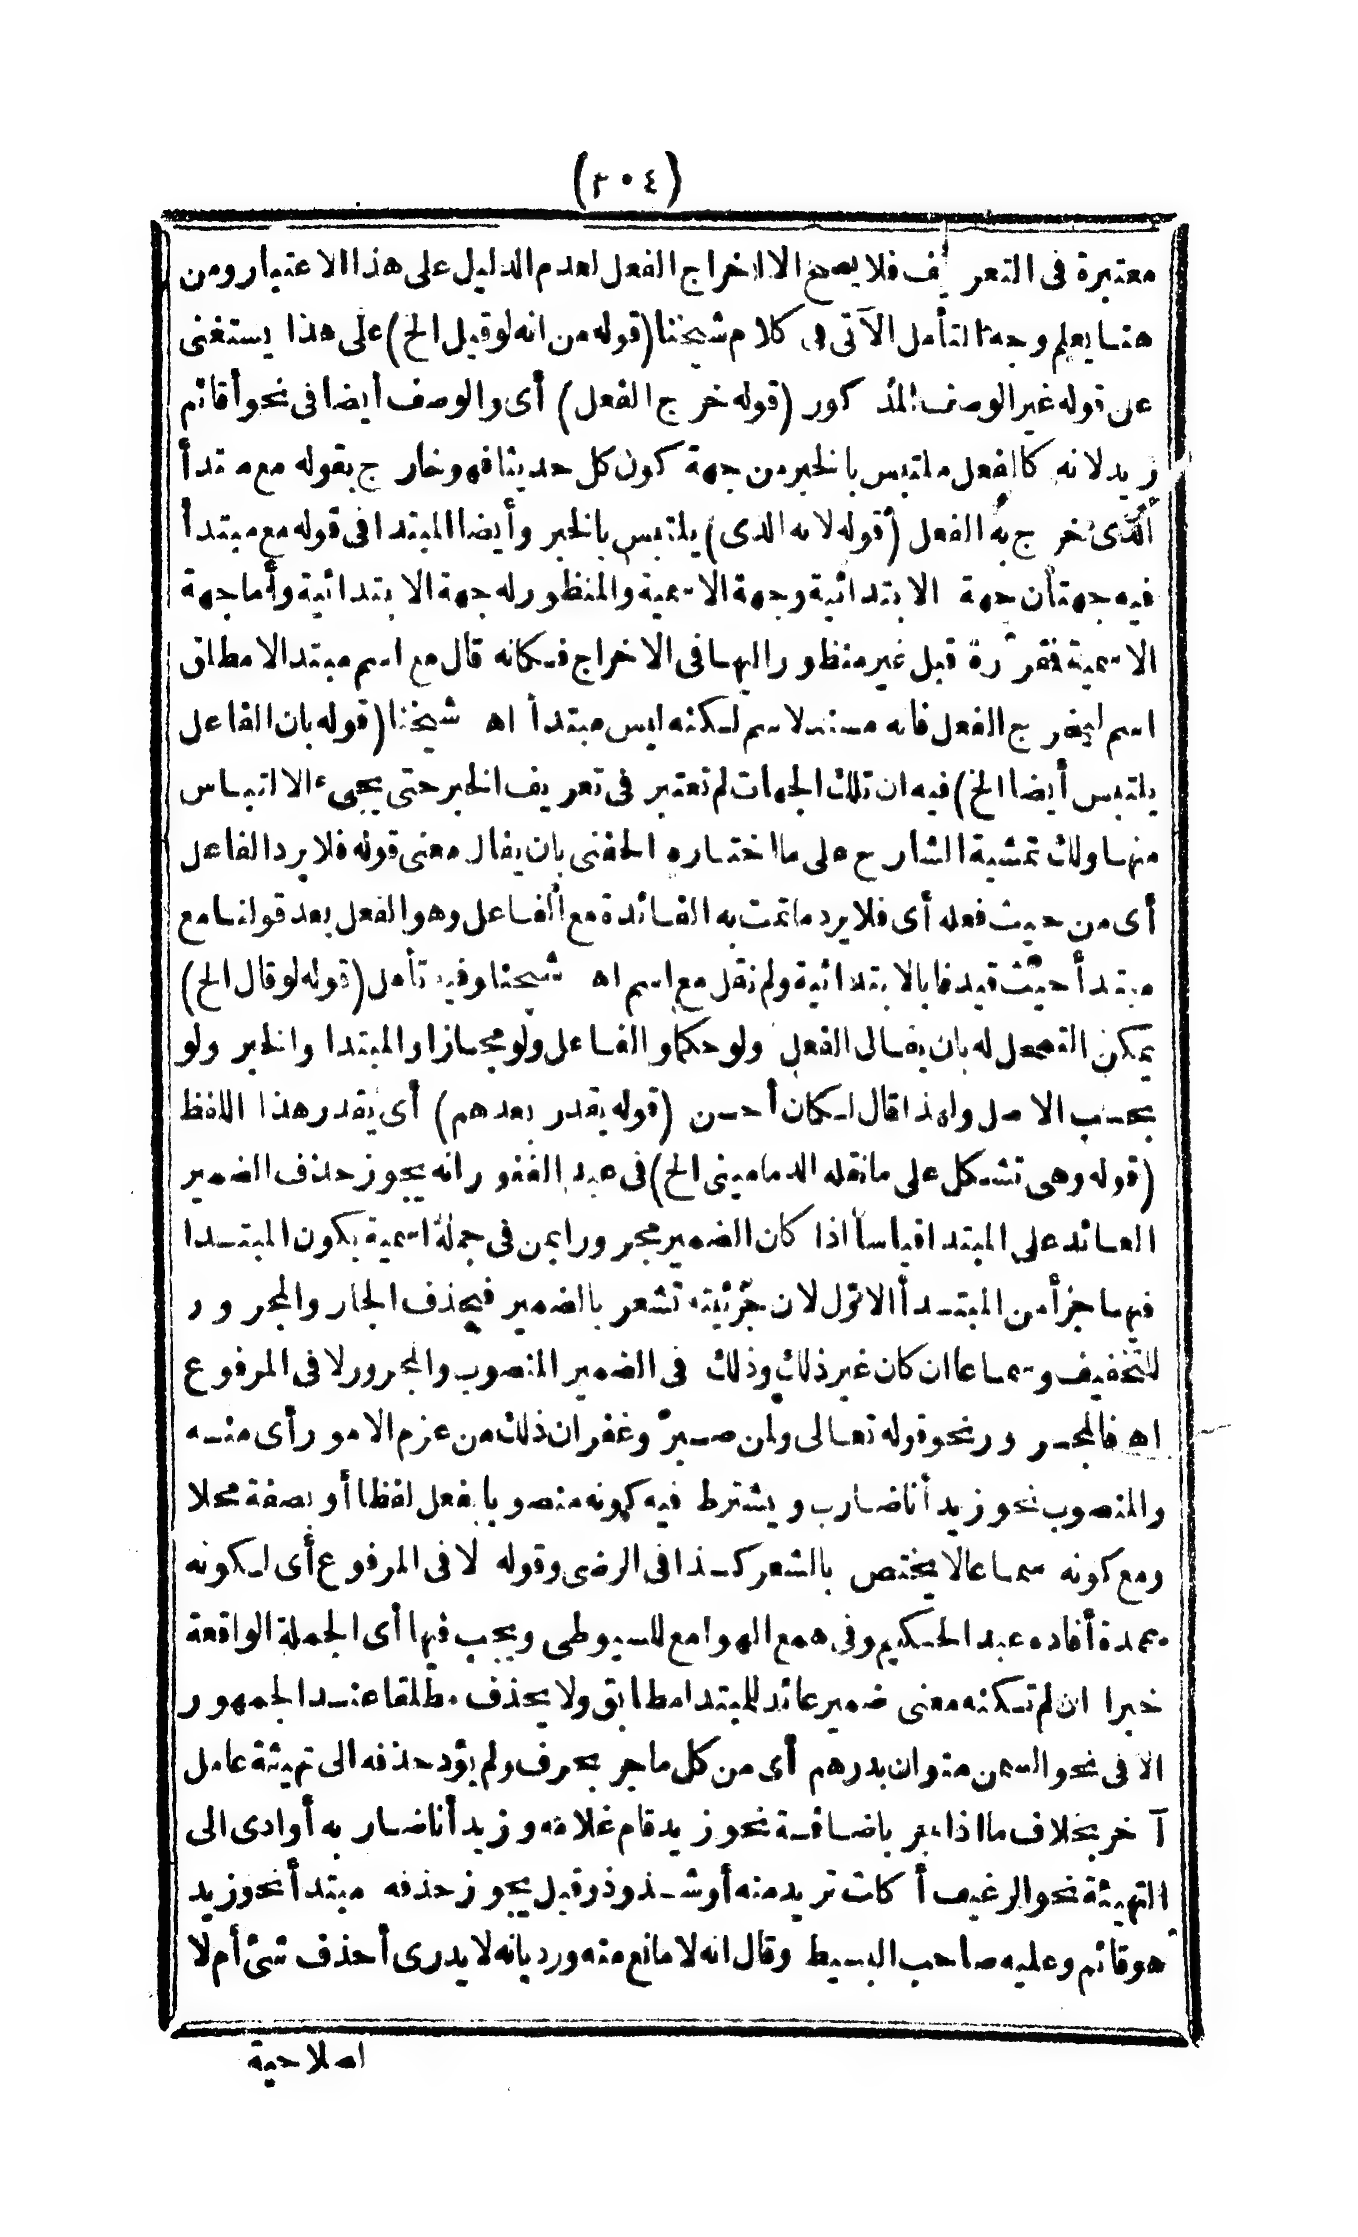 (٢٠٤)
معتبرة فى التعريف فلا يصح الا اخراج الفعل لعدم الدليل على هذا الاعتبار ومن
هنا يعلم وجه التأمل الآتى فى كلام شيخنا (قوله من انه لو قيل الخ) على هذا يستغنى
عن قوله غير الوصف المذكور (قوله خرج الفعل) أى والوصف أيضا فى نحو أقائم
زيد لانه كالفعل ملتبس بالخبر من جهة كون كل حديثا فهو خارج بقوله مع مبتدأ
الذى خرج به الفعل (قوله لانه الذى) يلتبس بالخبر وأيضا المبتدا فى قوله مع مبتدأ
فيه جهتان جهة الابتدائية وجهة الاسمية والمنظور له جهة الابتدائية وأما جهة
الاسمية فقررة قبل غير منظور اليها فى الاخراج فكانه قال مع اسم مبتدا لا مطلق
اسم ليخرج الفعل فانه مسند لاسم لكنه ليس مبتدأ اه شيخنا (قوله بان الفاعل
يلتبس أيضا الخ) فيه ان تلك الجهات لم تعتبر فى تعريف الخبر حتى يجىء الالتباس
منها ولك تمشية الشارح على ما اختاره الحفنى بان يقال معنى قوله فلا يرد الفاعل
أى من حيث فعله أى فلا يرد ما تمت به الفائدة مع الفاعل وهو الفعل بعد قولنا مع
مبتدأ حيث قيدنا بالابتدائية ولم نقل مع اسم اه شيخنا وفيه تأمل (قوله لو قال الخ)
يمكن التمحل له بان يقال الفعل ولو حكما والفاعل ولو مجازا والمبتدا والخبر ولو
بحسب الاصل ولهذا قال لكان أحسن (قوله يقدر بعدهم) أى يقدر هذا اللفظ
(قوله وهى تشكل على ما نقله الدمامينى الخ) فى عبد الغفور انه يجوز حذف الضمير
العائد على المبتدا قياسا اذا كان الضمير مجرورا بمن فى جملة اسمية يكون المبتدا
فيها جزأ من المبتدأ الاول لان جزئيته تشعر بالضمير فيحذف الجار والمجرور
للتخفيف وسماعا ان كان غير ذلك وذلك فى الضمير المنصوب والمجرور لا فى المرفوع
اه فالمجرور نحو قوله تعالى ولمن صبر وغفر ان ذلك من عزم الامور أى منه
والمنصوب نحو زيد أنا ضارب ويشترط فيه كونه منصوبا بفعل لفظا أو بصفة محلا
ومع كونه سماعا لا يختص بالشعر كذا فى الرضى وقوله لا فى المرفوع أى لكونه
عمدة أفاده عبد الحكيم وفى همع الهوامع للسيوطى ويجب فيها أى الجملة الواقعة
خبرا ان لم تكنه معنى ضمير عائد للمبتدا مطابق ولا يحذف مطلقا عند الجمهور
الا فى نحو السمن منوان بدرهم أى من كل ما جر بحرف ولم يؤد حذفه الى تهيئة عامل
آخر بخلاف ما اذا جر باضافة نحو زيد قام غلامه وزيد أنا ضاربه أو ادى الى
التهيئة نحو الرغيف أكلت تريد منه أو شذوذ وقيل يجوز حذفه مبتدأ نحو زيد
هو قائم وعليه صاحب البسيط وقال انه لا مانع منه ورد بانه لا يدرى أحذف شئ أم لا
لصلاحية